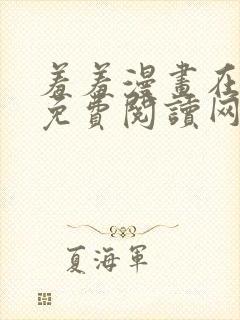 羞羞漫畫在
免費閱讀网
夏海軍